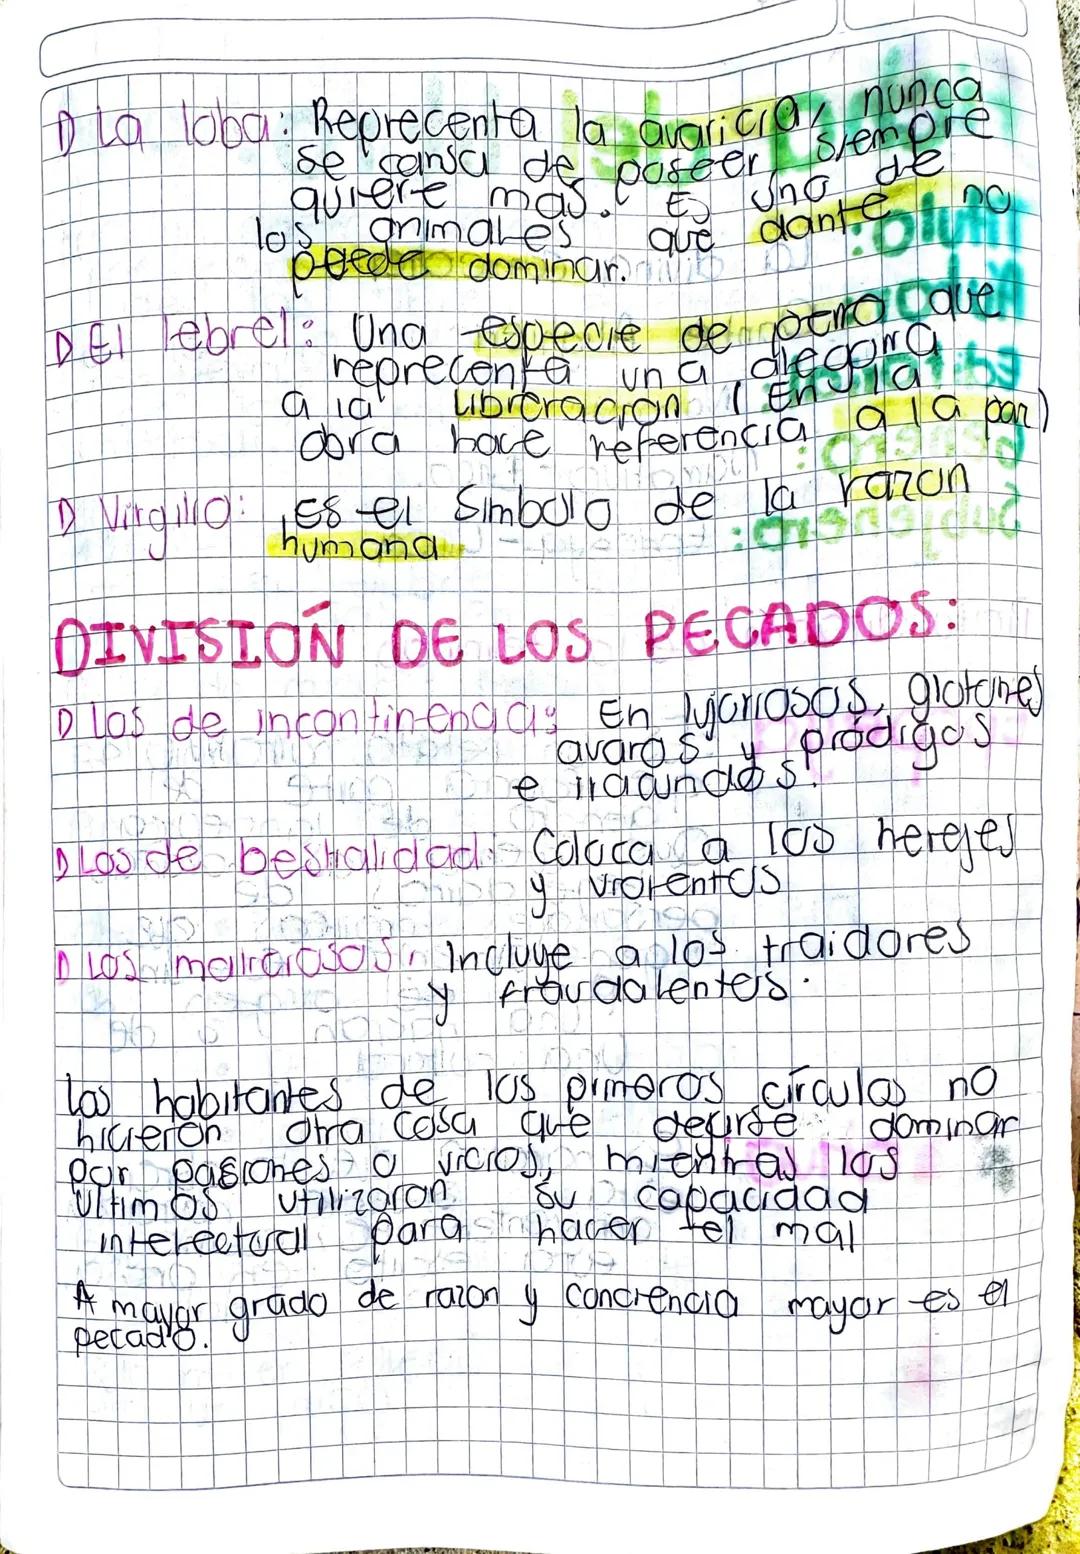 D La loba: Reprecenta la avaricia, nunca
se cansa de poseer, siempre
quiere mas. Es uno de
los animales que dante no
puede dominar.
D El lebrel: Una especie de perro que
reprecenta una alegoria
a la libreracion (En la
obra hace referencia a la paz)
D Virgilio: Es el Simbolo de la razon
humana
DIVISIÓN DE LOS PECADOS:
D Los de incontinencia: En lujoriosos, glotones
avaros y pródigos
e iracundos.
D Los de bestialidad: Coloca a los herejes
y violentos
D Los maliciosos: Incluye a los traidores
y fraudalentes.
Los habitantes de los primeros círculos no
hicieron otra cosa que dejarse dominar
por pasiones o vicios, mientras los
ultimos utilizaron su capacidad
intelectual para hacer el mal
A mayor grado de razon y conciencia mayor es el
pecado.